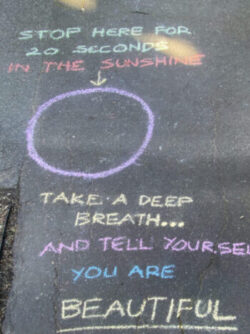 STOP HERE FOR
20 SECONDS
IN THE SUNSHINE
TAKE A DEEP
BREATH...
AND TELL YOURSEL
YOU ARE
BEAUTIFUL